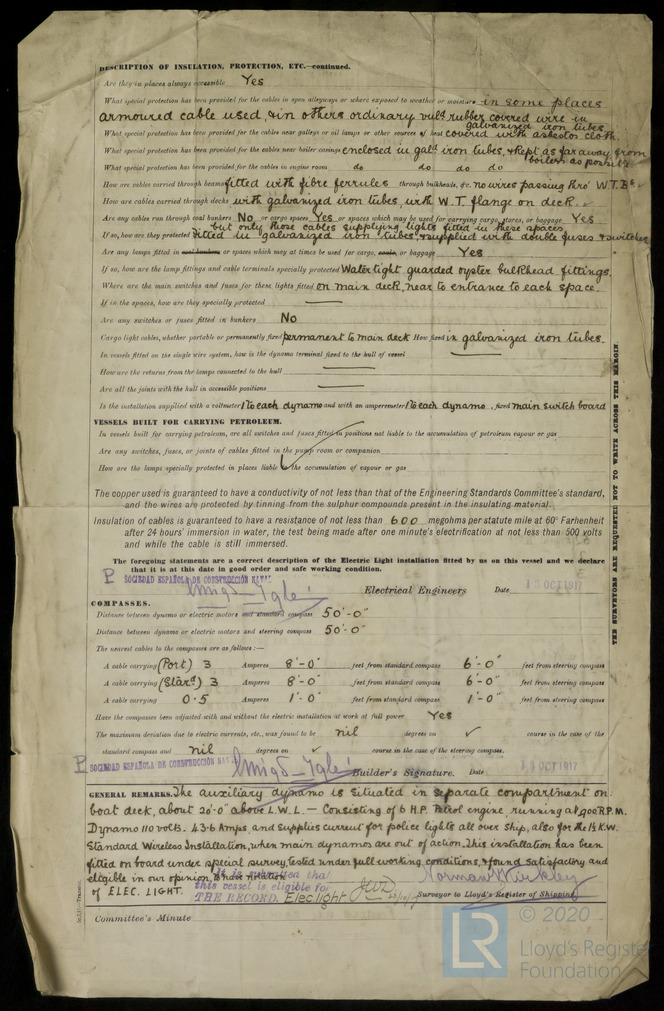 DESCRIPTION OF INSULATION, PROTECTION, ETC.—continued.
Are they in places always accessible Yes
What special protection has been provided for the cables in open alleyways or where exposed to weather or moisture in some places
armoured cable used, & in others ordinary vulc rubber covered wire in
galvanized iron tubes
What special protection has been provided for the cables near galleys or oil lamps or other sources of heat covered with asbestos cloth.
What special protection has been provided for the cables near boiler casings enclosed in galᵈ iron tubes, & kept as far away from
boilers as possible
What special protection has been provided for the cables in engine room do do do do
How are cables carried through beams fitted with fibre ferrules through bulkheads, &c. no wires passing thro' W.T.Bs
How are cables carried through decks with galvanized iron tubes, with W.T. flange on deck.
Are any cables run through coal bunkers No or cargo spaces Yes or spaces which may be used for carrying cargo, stores, or baggage Yes
but only those cables supplying lights fitted in these spaces
If so, how are they protected fitted in galvanized iron tubes, & supplied with double fuses & switches
Are any lamps fitted in coal bunkers or spaces which may at times be used for cargo, coals, or baggage Yes
If so, how are the lamp fittings and cable terminals specially protected Watertight guarded oyster bulkhead fittings.
Where are the main switches and fuses for these lights fitted on main deck, near to entrance to each space.
If in the spaces, how are they specially protected —
Are any switches or fuses fitted in bunkers No
Cargo light cables, whether portable or permanently fixed permanent to main deck How fixed in galvanized iron tubes.
In vessels fitted on the single wire system, how is the dynamo terminal fixed to the hull of vessel —
How are the returns from the lamps connected to the hull —
Are all the joints with the hull in accessible positions —
Is the installation supplied with a voltmeter 1 to each dynamo and with an amperemeter 1 to each dynamo, fixed main switch board
VESSELS BUILT FOR CARRYING PETROLEUM.
In vessels built for carrying petroleum, are all switches and fuses fitted in positions not liable to the accumulation of petroleum vapour or gas
Are any switches, fuses, or joints of cables fitted in the pump room or companion
How are the lamps specially protected in places liable to the accumulation of vapour or gas
The copper used is guaranteed to have a conductivity of not less than that of the Engineering Standards Committee's standard,
and the wires are protected by tinning from the sulphur compounds present in the insulating material.
Insulation of cables is guaranteed to have a resistance of not less than 600 megohms per statute mile at 60° Farhenheit
after 24 hours' immersion in water, the test being made after one minute's electrification at not less than 500 volts
and while the cable is still immersed.
The foregoing statements are a correct description of the Electric Light installation fitted by us on this vessel and we declare
that it is at this date in good order and safe working condition.
P SOCIEDAD ESPAÑOLA DE CONSTRUCCIÓN NAVAL
Electrical Engineers Date 13 OCT 1917
COMPASSES.
Distance between dynamo or electric motors and standard compass 50'-0"
Distance between dynamo or electric motors and steering compass 50'-0"
The nearest cables to the compasses are as follows:—
A cable carrying (Port) 3 Amperes 8'-0" feet from standard compass 6'-0" feet from steering compass
A cable carrying (Starᵈ) 3 Amperes 8'-0" feet from standard compass 6'-0" feet from steering compass
A cable carrying 0.5 Amperes 1'-0" feet from standard compass 1'-0" feet from steering compass
Have the compasses been adjusted with and without the electric installation at work at full power Yes
The maximum deviation due to electric currents, etc., was found to be nil degrees on ✓ course in the case of the
standard compass and nil degrees on ✓ course in the case of the steering compass.
P SOCIEDAD ESPAÑOLA DE CONSTRUCCIÓN NAVAL
Builder's Signature. Date 13 OCT 1917
GENERAL REMARKS. The auxiliary dynamo is situated in separate compartment on
boat deck, about 20'-0" above L.W.L. — Consisting of 6 H.P. Petrol engine, running at 900 R.P.M.
Dynamo 110 volts. 43.6 Amps, and supplies current for police lights all over ship, also for the 1½ K.W.
Standard Wireless Installation, when main dynamos are out of action. This installation has been
fitted on board under special survey, tested under full working conditions, & found satisfactory and
eligible in our opinion, to have notation
of ELEC. LIGHT.
It is submitted that
this vessel is eligible for
THE RECORD. Elec light
Surveyor to Lloyd's Register of Shipping
Committee's Minute
THE SURVEYORS ARE REQUESTED NOT TO WRITE ACROSS THIS MARGIN
© 2020
LR
Lloyd's Register
Foundation